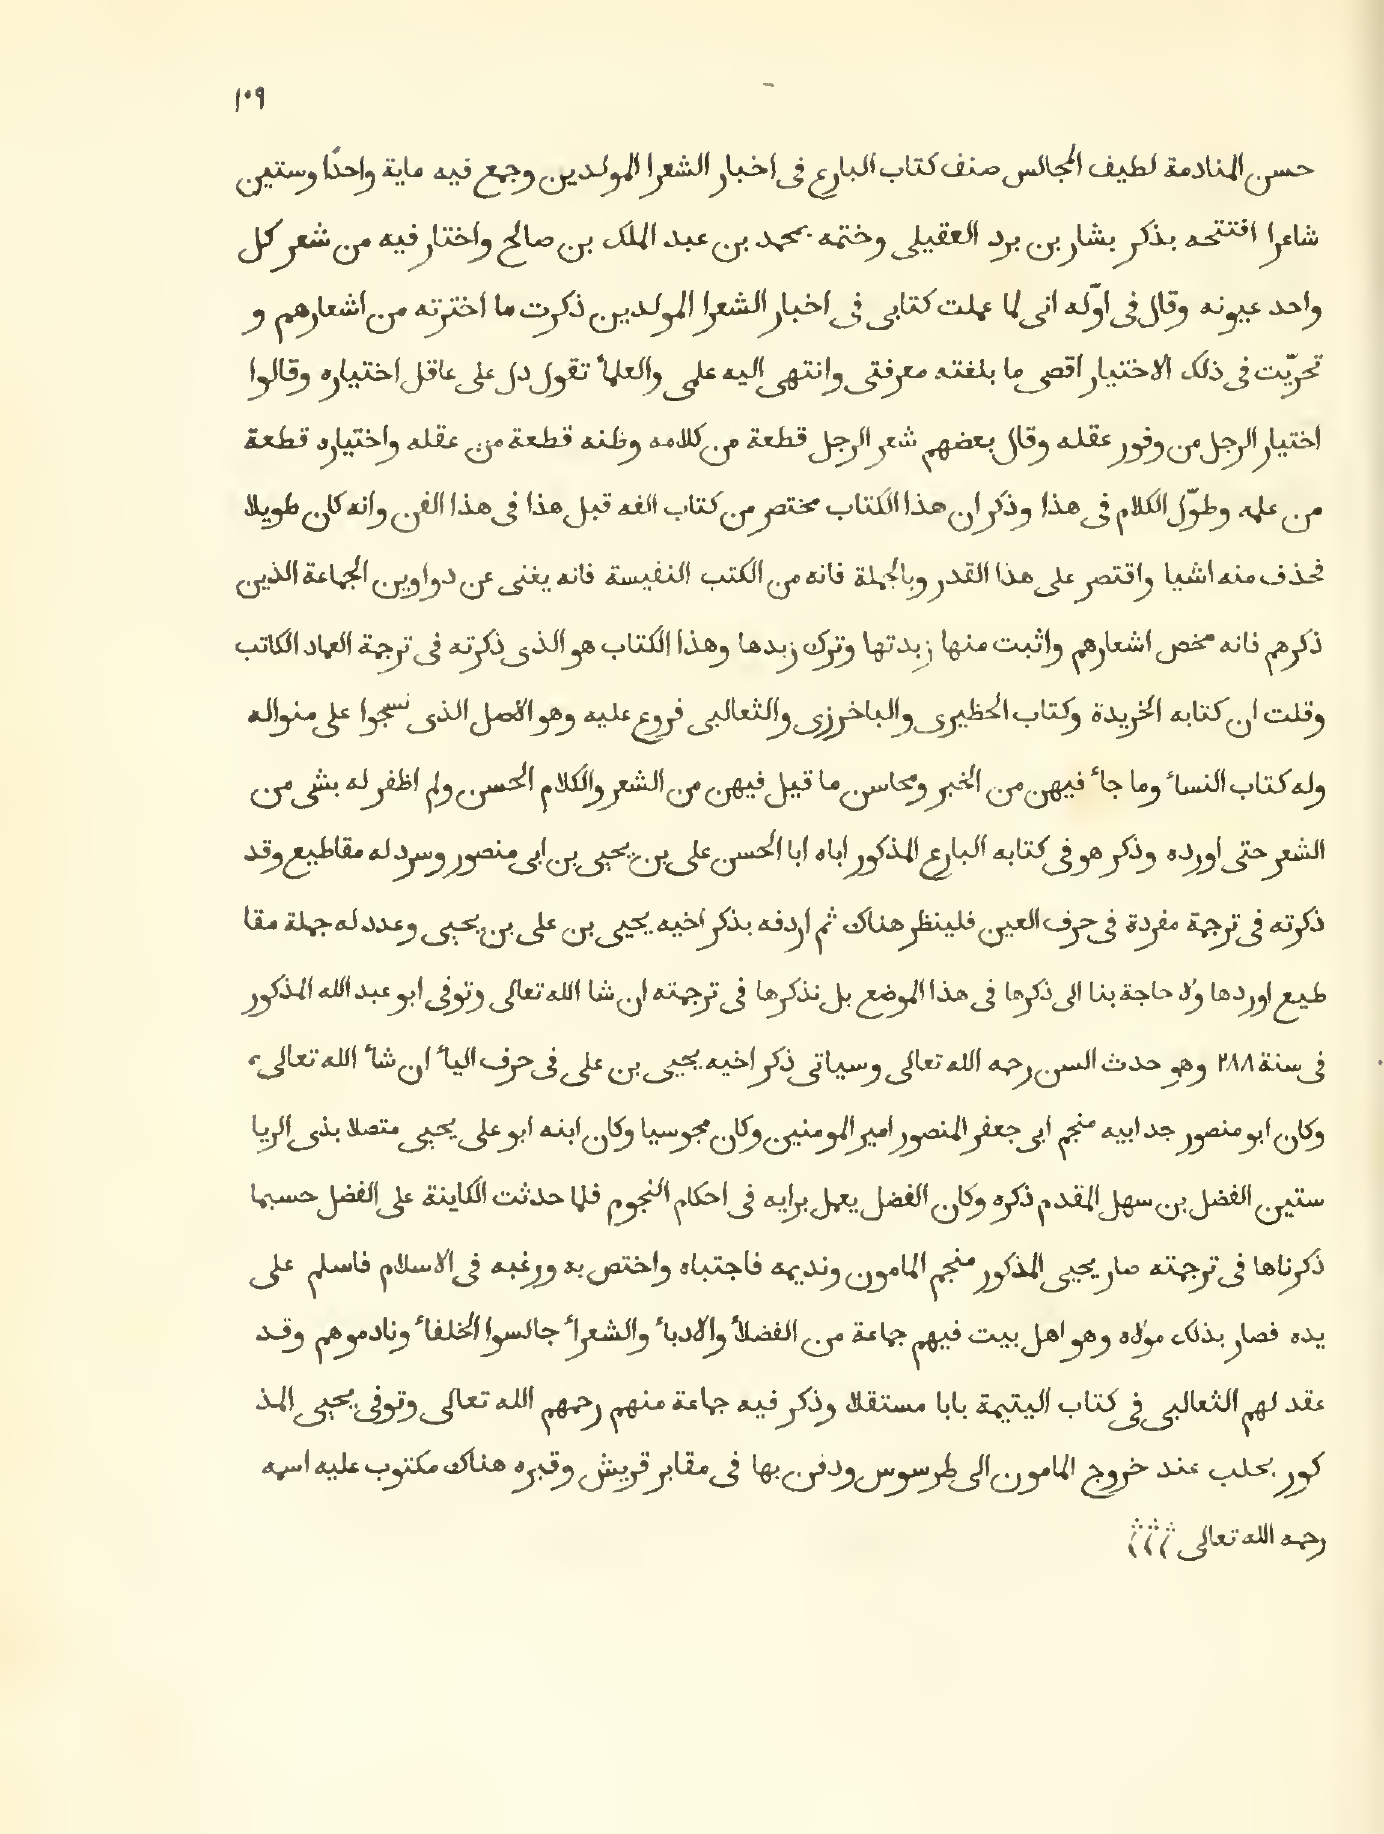 ١٠٩
حسن المنادمة لطيف المجالس صنف كتاب البارع فى اخبار الشعرا المولدين وجمع فيه ماية واحدًا وستين
شاعرا افتتحه بذكر بشار بن برد العقيلى وختمه بمحمد بن عبد الملك بن صالح واختار فيه من شعر كل
واحد عيونه وقال فى اوّله انى لما عملت كتابى فى اخبار الشعرا المولدين ذكرت ما اخترته من اشعارهم و
تحريّت فى ذلك الاختيار اقصى ما بلغته معرفتى وانتهى اليه علمى والعلمأ تقول دل على عاقل اختياره وقالوا
اختيار الرجل من وفور عقله وقال بعضهم شعر الرجل قطعة من كلامه وظنه قطعة من عقله واختياره قطعة
من علمه وطوّل الكلام فى هذا وذكر ان هذا الكتاب مختصر من كتاب الفه قبل هذا فى هذا الفن وانه كان طويلا
فحذف منه اشيا واقتصر على هذا القدر وبالجملة فانه من الكتب النفيسة فانه يغنى عن دواوين الجماعة الذين
ذكرهم فانه مخص اشعارهم واثبت منها زبدتها وترك زبدها وهذا الكتاب هو الذى ذكرته فى ترجمة العماد الكاتب
وقلت ان كتابه الخريدة وكتاب الحظيرى والباخرزى والثعالبى فروع عليه وهو الاصل الذى نسجوا على منواله
وله كتاب النسأ وما جأ فيهن من الخبر ومحاسن ما قيل فيهن من الشعر والكلام الحسن ولم اظفر له بشى من
الشعر حتى اورده وذكر هو فى كتابه البارع المذكور اباه ابا الحسن على بن يحيى بن ابى منصور وسرد له مقاطيع وقد
ذكرته فى ترجمة مفردة فى حرف العين فلينظر هناك ثم اردفه بذكر اخيه يحيى بن على بن يحيى وعدد له جملة مقا
طيع اوردها ولا حاجة بنا الى ذكرها فى هذا الموضع بل نذكرها فى ترجمته ان شا الله تعالى وتوفى ابو عبد الله المذكور
فى سنة ٢٨٨ وهو حدث السن رحمه الله تعالى وسياتى ذكر اخيه يحيى بن على فى حرف اليأ ان شأ الله تعالى،
وكان ابو منصور جد ابيه منجم ابى جعفر المنصور امير المومنين وكان مجوسيا وكان ابنه ابو على يحيى متصلا بذى الريا
ستين الفضل بن سهل المقدم ذكره وكان الفضل يعمل برايه فى احكام النجوم فلما حدثت الكاينة على الفضل حسبما
ذكرناها فى ترجمته صار يحيى المذكور منجم المامون ونديمه فاجتباه واختص به ورغبه فى الاسلام فاسلم على
يده فصار بذلك مولاه وهو اهل بيت فيهم جماعة من الفضلأ والادبأ والشعرأ جالسوا الخلفأ ونادموهم وقد
عقد لهم الثعالبى فى كتاب اليتيمة بابا مستقلا وذكر فيه جماعة منهم رحمهم الله تعالى وتوفى يحيى المذ
كور بحلب عند خروج المامون الى طرسوس ودفن بها فى مقابر قريش وقبره هناك مكتوب عليه اسمه
رحمه الله تعالى